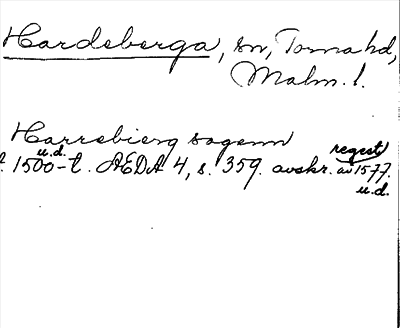 Hardeberga, sn, Torna hd,
Malm. l.
Harrebierg sogenn
u.d. regest
1500-t. AEDA 4, s. 359. avskr. av 1577.
u.d.